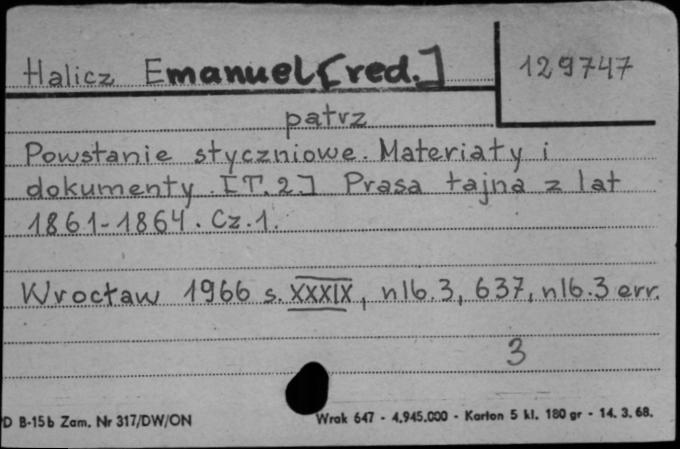 Halicz Emanuel [red.]
129747
patrz
Powstanie styczniowe. Materiały i
dokumenty. [T. 2.] Prasa tajna z lat
1861-1864. Cz. 1.
Wrocław 1966 s. XXXIX, nlb. 3, 637, nlb. 3 err.
3
PD B-15b Zam. Nr 317/DW/ON
Wrak 647 - 4.945.000 - Karton 5 kl. 180 gr - 14. 3. 68.